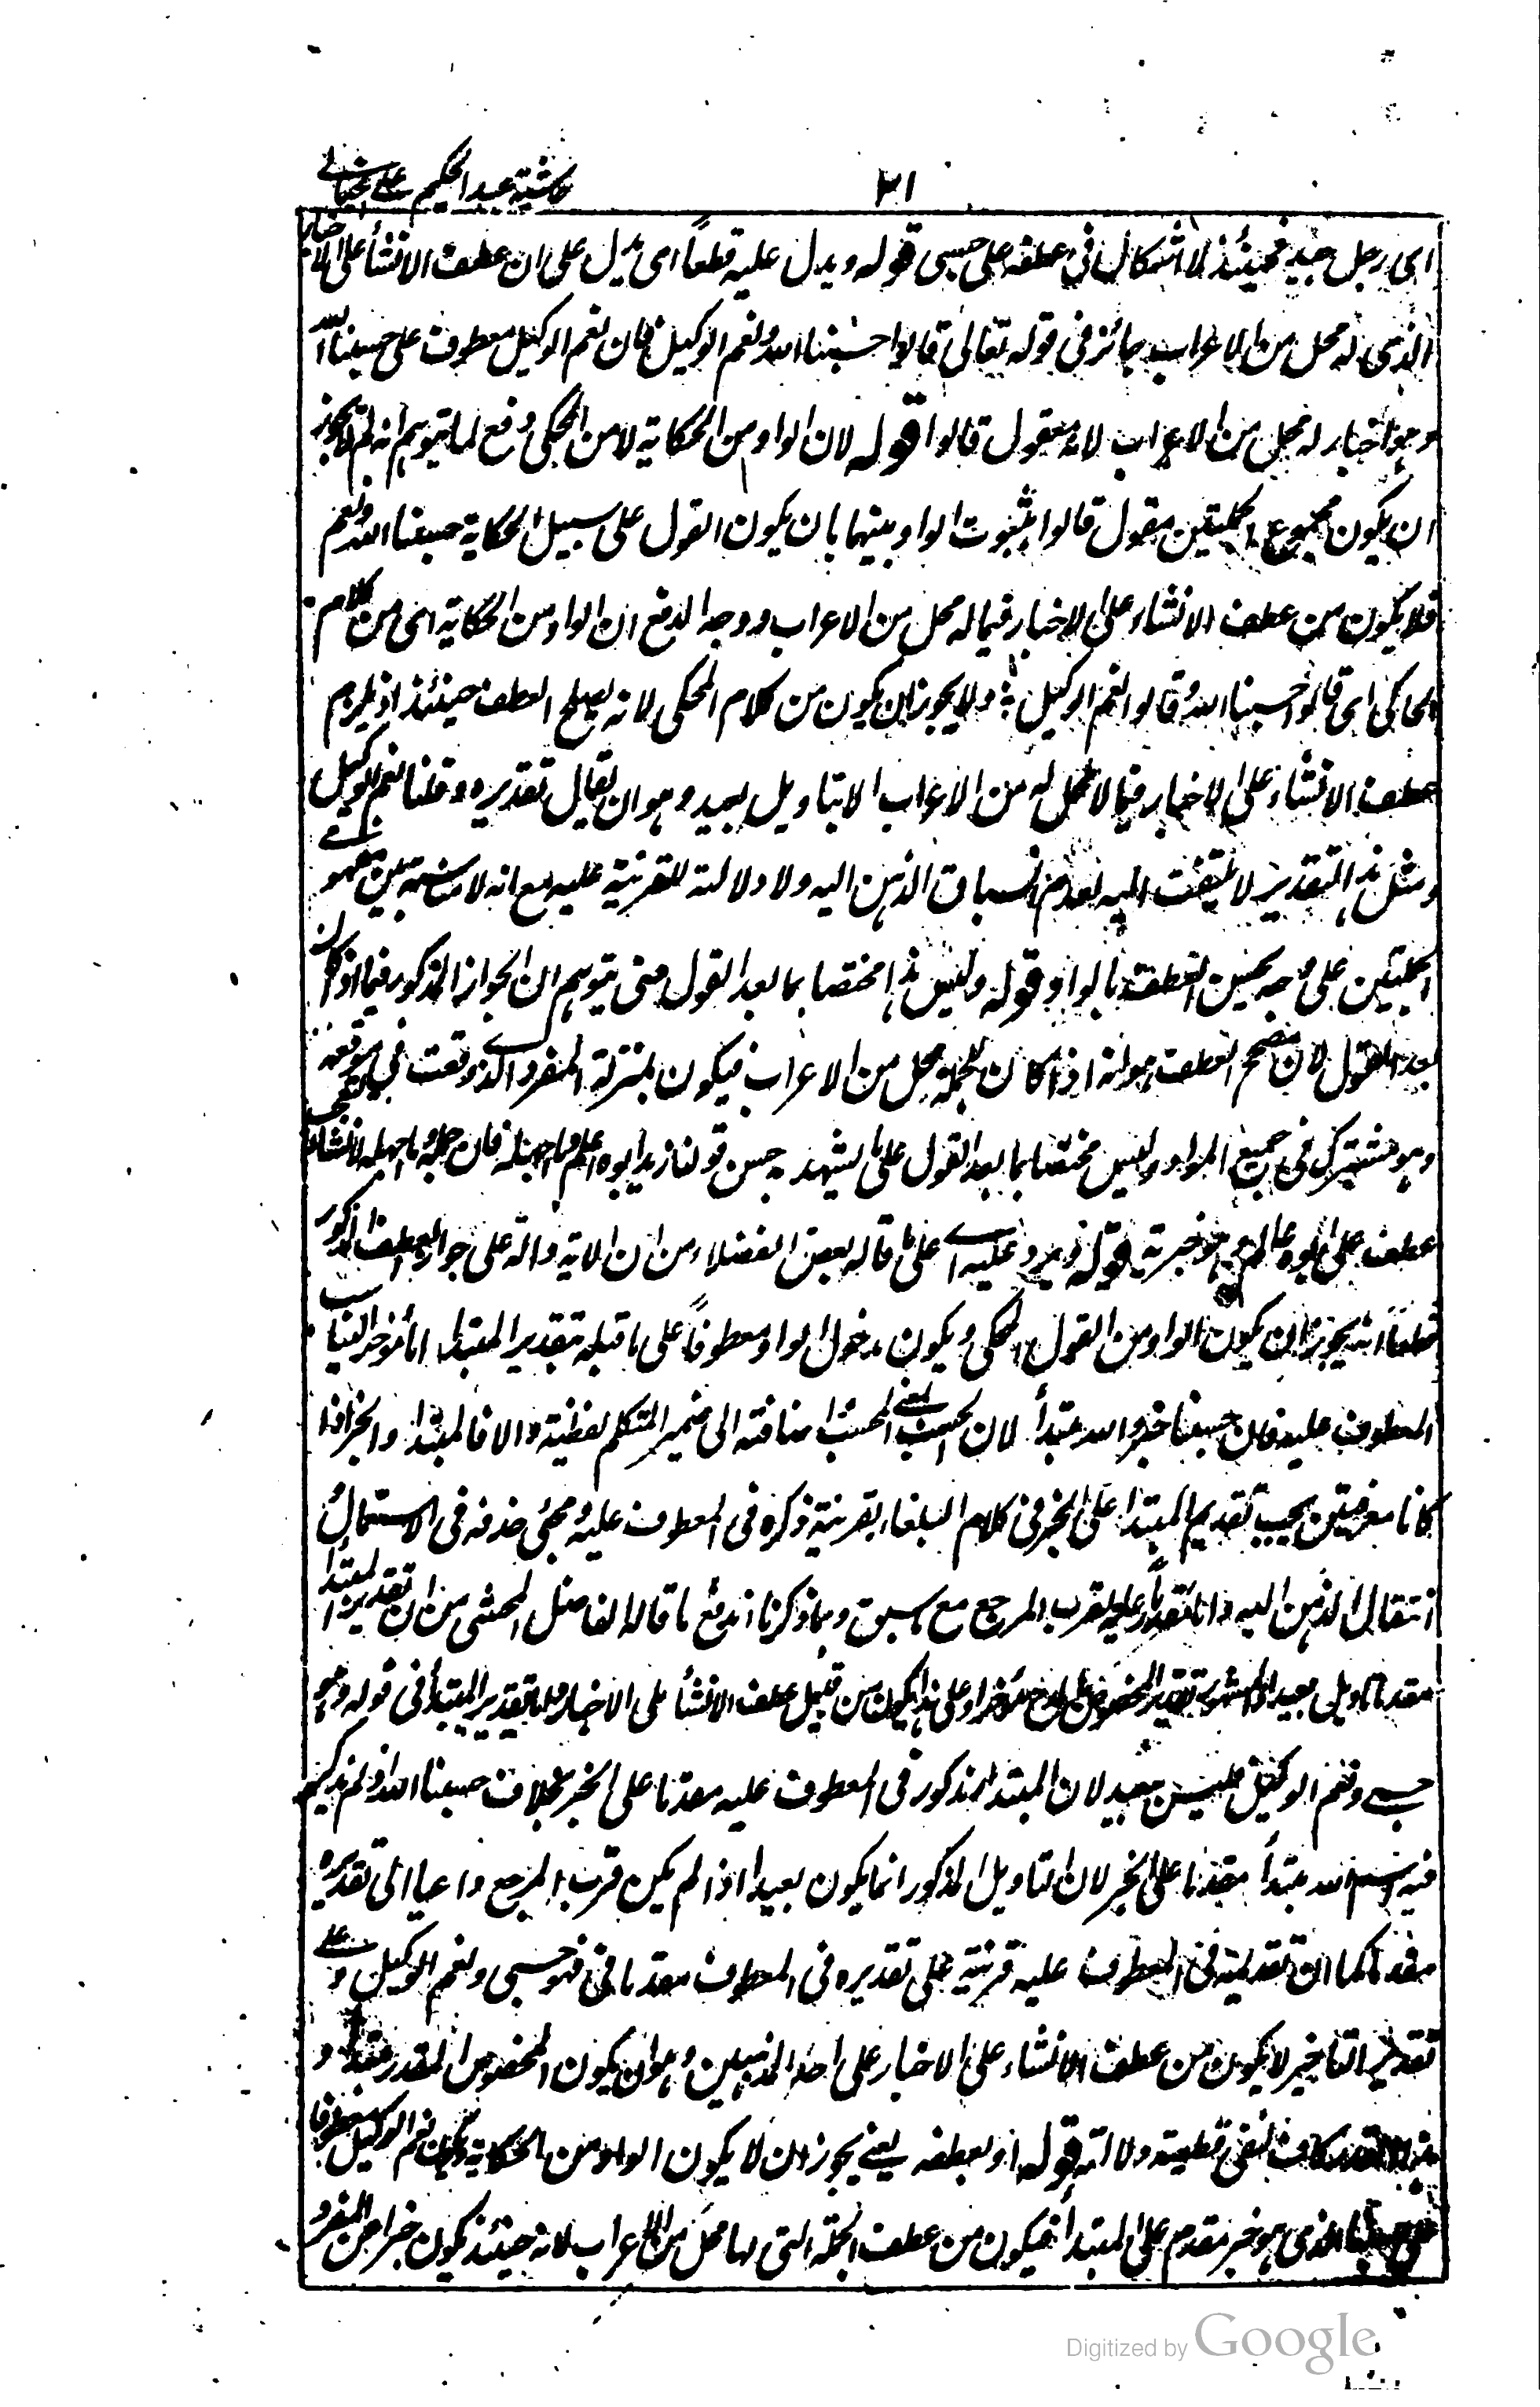 حاشية عبد الحكيم على خيالى
٢١
اى رجل جيد فحينئذ لا اشكال فى عطفه على حسبى قوله ويدل عليه قطعاً اى يدل على ان عطف الانشأ على الاخبار
الذى له محل من الاعراب جائز فى قوله تعالى قالوا حسبنا الله ونعم الوكيل فان نعم الوكيل معطوف على حسبنا الله
وهو اخبار له محل من الاعراب لانه مقول قالوا قوله لان الواو من الحكاية لا من المحكى دفع لما يتوهم انه لم لا يجوز
ان يكون مجموع الجملتين مقول قالوا بثبوت الواو بينهما بان يكون القول على سبيل الحكاية حسبنا الله ونعم
فلا يكون من عطف الانشاء على الاخبار فيما له محل من الاعراب ووجه الدفع ان الواو من الحكاية اى من كلام
الحاكى اى قالوا حسبنا الله وقالوا نعم الوكيل ولا يجوز ان يكون من كلام المحكى لانه يصلح العطف حينئذ اذ يلزم
عطف الانشاء على الاخبار فيما لا محل له من الاعراب الا بتاويل بعيد وهو ان يقال تقديره وقلنا نعم الوكيل
ومثل هذا التقدير لا يلتفت اليه لعدم انسباق الذهن اليه ولا دلالة للقرينة عليه مع انه لا مناسبة بين مفهومى
الجملتين على وجه يحسن العطف بالواو قوله وليس هذا مختصا بما بعد القول حتى يتوهم ان الجواز المذكور فيما اذا كان
بعد القول لان مصحح العطف هو انه اذا كان للجملة محل من الاعراب فيكون بمنزلة المفرد الذى وقعت فى موقعه
وهو مشترك فى جميع المواد وليس مختصا بما بعد القول على ما يشهد به حسن قولنا زيد ابوه عالم وما اجهله فان جملة ما اجهله انشائى
عطف على ابوه عالم وهو خبرية قوله ويرد عليه اى على ما قاله بعض الفضلاء من ان الاية دالة على جواز العطف المذكور
قطعاً انه يجوز ان يكون الواو من القول المحكى ويكون مدخول الواو معطوفاً على ما قبله بتقدير المبتدا اما مؤخرا ليناسب
المعطوف عليه فان حسبنا خبر والله مبتدأ لان الحسب بمعنى المحسب اضافته الى ضمير المتكلم لفظية والا فالمبتدا والخبر اذا
كانا معرفتين يجب تقديم المبتدا على الخبر فى كلام البلغاء بقرينة ذكره فى المعطوف عليه ومجئى حذفه فى الاستعمال
انتقال الذهن اليه واما مقدماً رعاية لقرب المرجع مع ما سبق وبما ذكرنا اندفع ما قاله الفاضل المحشى من ان تقدير المبتدا
مقدما تاويل بعيد اذ المشهور تقدير المخصوص بالمدح مؤخرا وعلى هذا يكون من قبيل عطف الانشأ على الاخبار واما تقدير المبتدأ فى قوله وهو
حسبى ونعم الوكيل فليس ببعيد لان المبتدا مذكور فى المعطوف عليه مقدما على الخبر بخلاف حسبنا الله اذ لم يذكر
فيه اسم الله مبتدأ مقدما على الخبر لان التاويل المذكور انما يكون بعيدا اذا لم يكن قرب المرجع داعيا الى تقديره
مقدما كما ان تقديمه فى المعطوف عليه قرينة على تقديره فى المعطوف مقدما فى فهو حسبى ونعم الوكيل وعلى
تقدير التاخير لا يكون من عطف الانشاء على الاخبار على احد المذهبين وهو ان يكون المخصوص المقدر مبتدأ و
كاف لنفى قطعية دلالته قوله او بعطفه يعنى يجوز ان لا يكون الواو من الحكاية ويكون نعم الوكيل معطوفا
على حسبنا الذى هو خبر مقدم على المبتدأ فيكون من عطف الجملة التى لها محل من الاعراب لانه حينئذ يكون خبرا عن المفرد
Digitized by Google